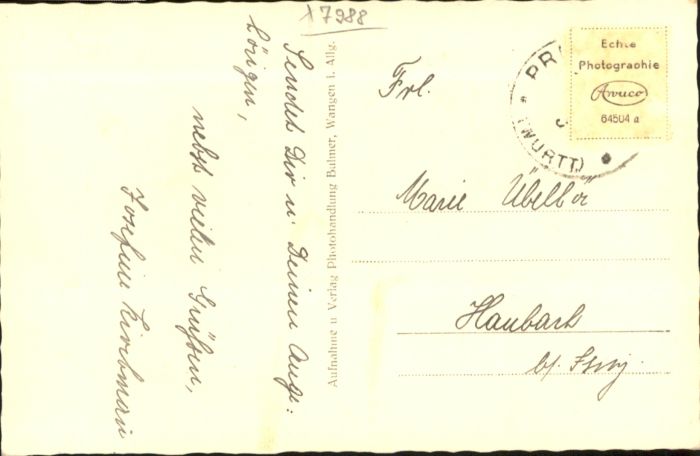 17988
Sendet Dir u Deinen Ange:
hörigen,
nebst vielen Grüßen,
Josefine
Aufnahme u Verlag Photohandlung Balmer, Wangen i. Allg.
Frl.
Marie Übelhör
Haubach
b/. Isny
Echte
Photographie
Arvuco
64504 a
(WÜRTT)